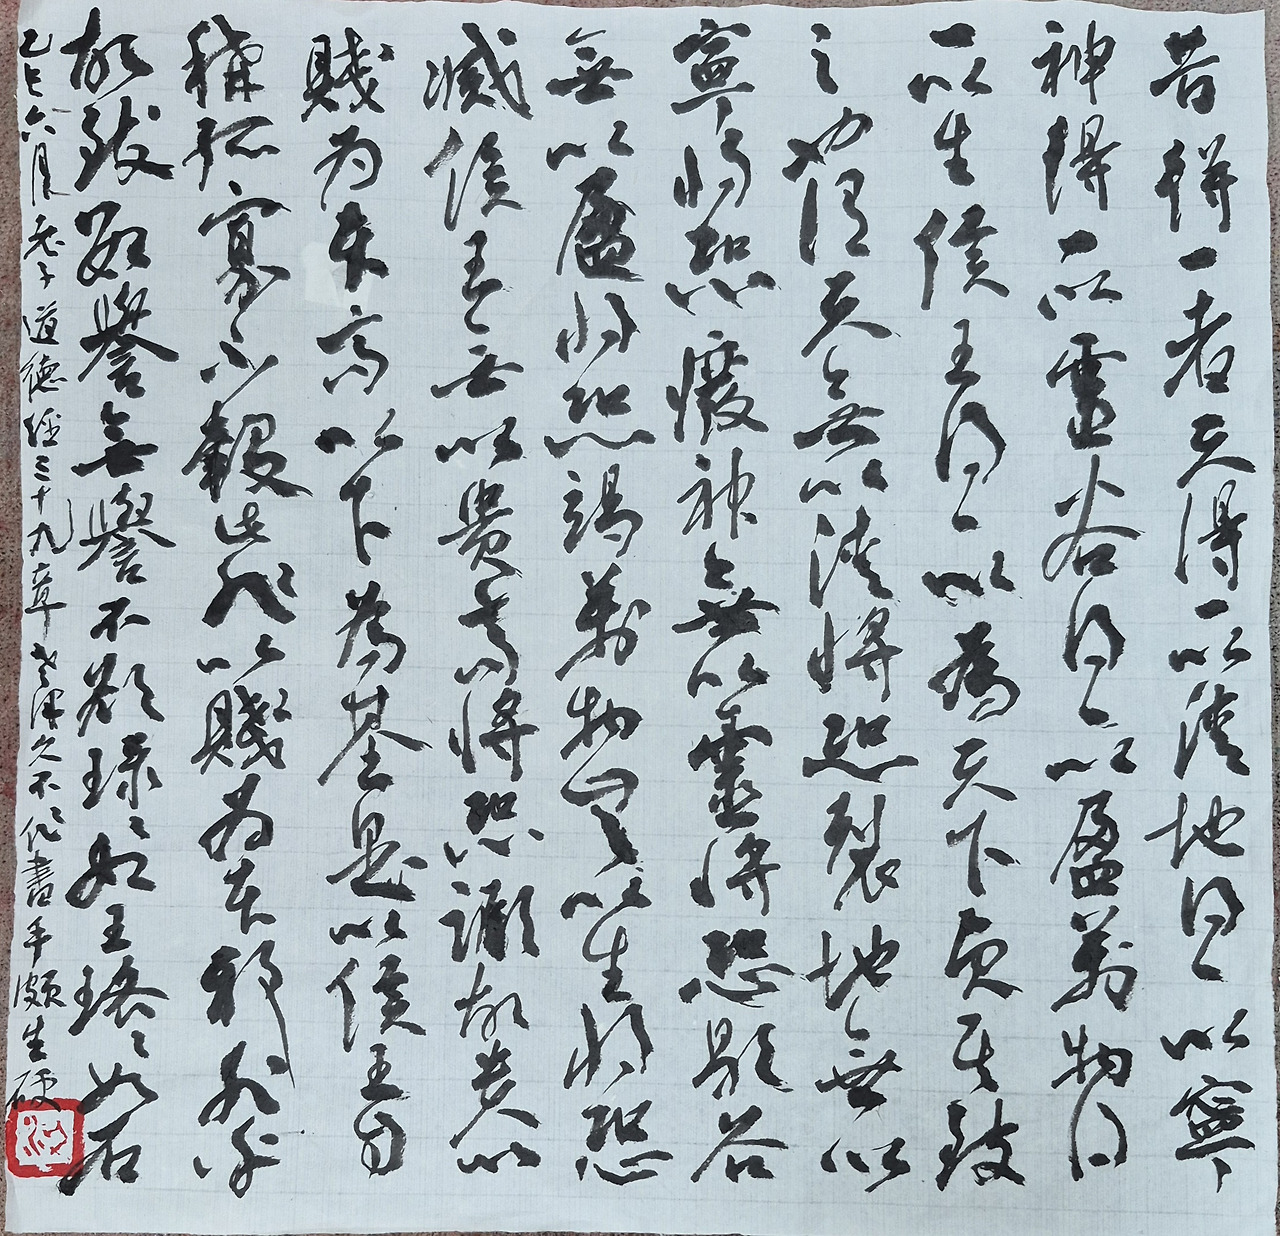 昔得一者天得一以清地得一以寧
神得一以靈谷得一以盈萬物得
一以生侯王得一以為天下貞其致
之也謂天無以清將恐裂地無以
寧將恐廢神無以靈將恐歇谷
無以盈將恐竭萬物無以生將恐
滅侯王無以貴高將恐蹶故貴以
賤為本高以下為基是以侯王自
稱孤寡不穀此非以賤為本邪非乎
故致數譽無譽不欲琭琭如玉珞珞如石
乙巳六月老子道德經三十九章老澤久不作書手頗生硬